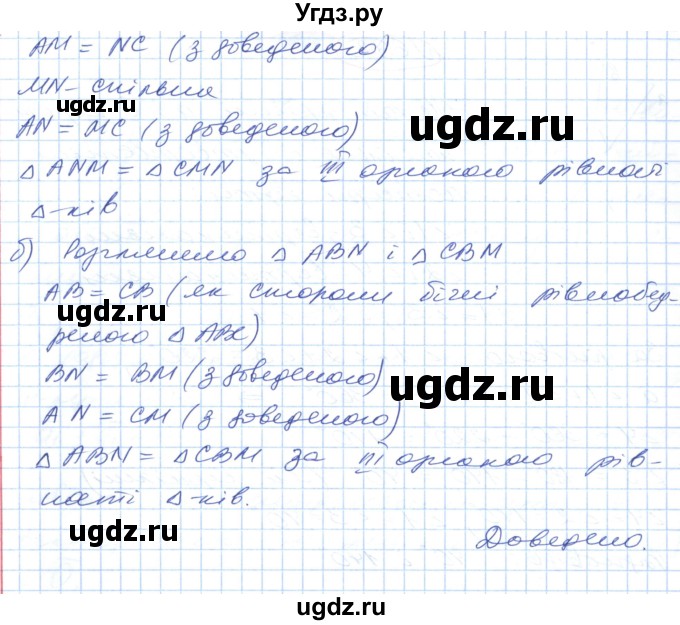 Угдз.ру
AM = NC (з доведеного)
MN - спільна
AN = MC (з доведеного)
△ ANM = △ CMN за III ознакою рівності
△-ків
б) Розглянемо △ ABN і △ CBM
AB = CB (як сторони бічні рівнобед-
реного △ ABC)
BN = BM (з доведеного)
AN = CM (з доведеного)
△ ABN = △ CBM за III ознакою рів-
ності △-ків.
Доведено.
ugdz.ru
ugdz.ru
ugdz.ru
ugdz.ru
ugdz.ru
ugdz.ru